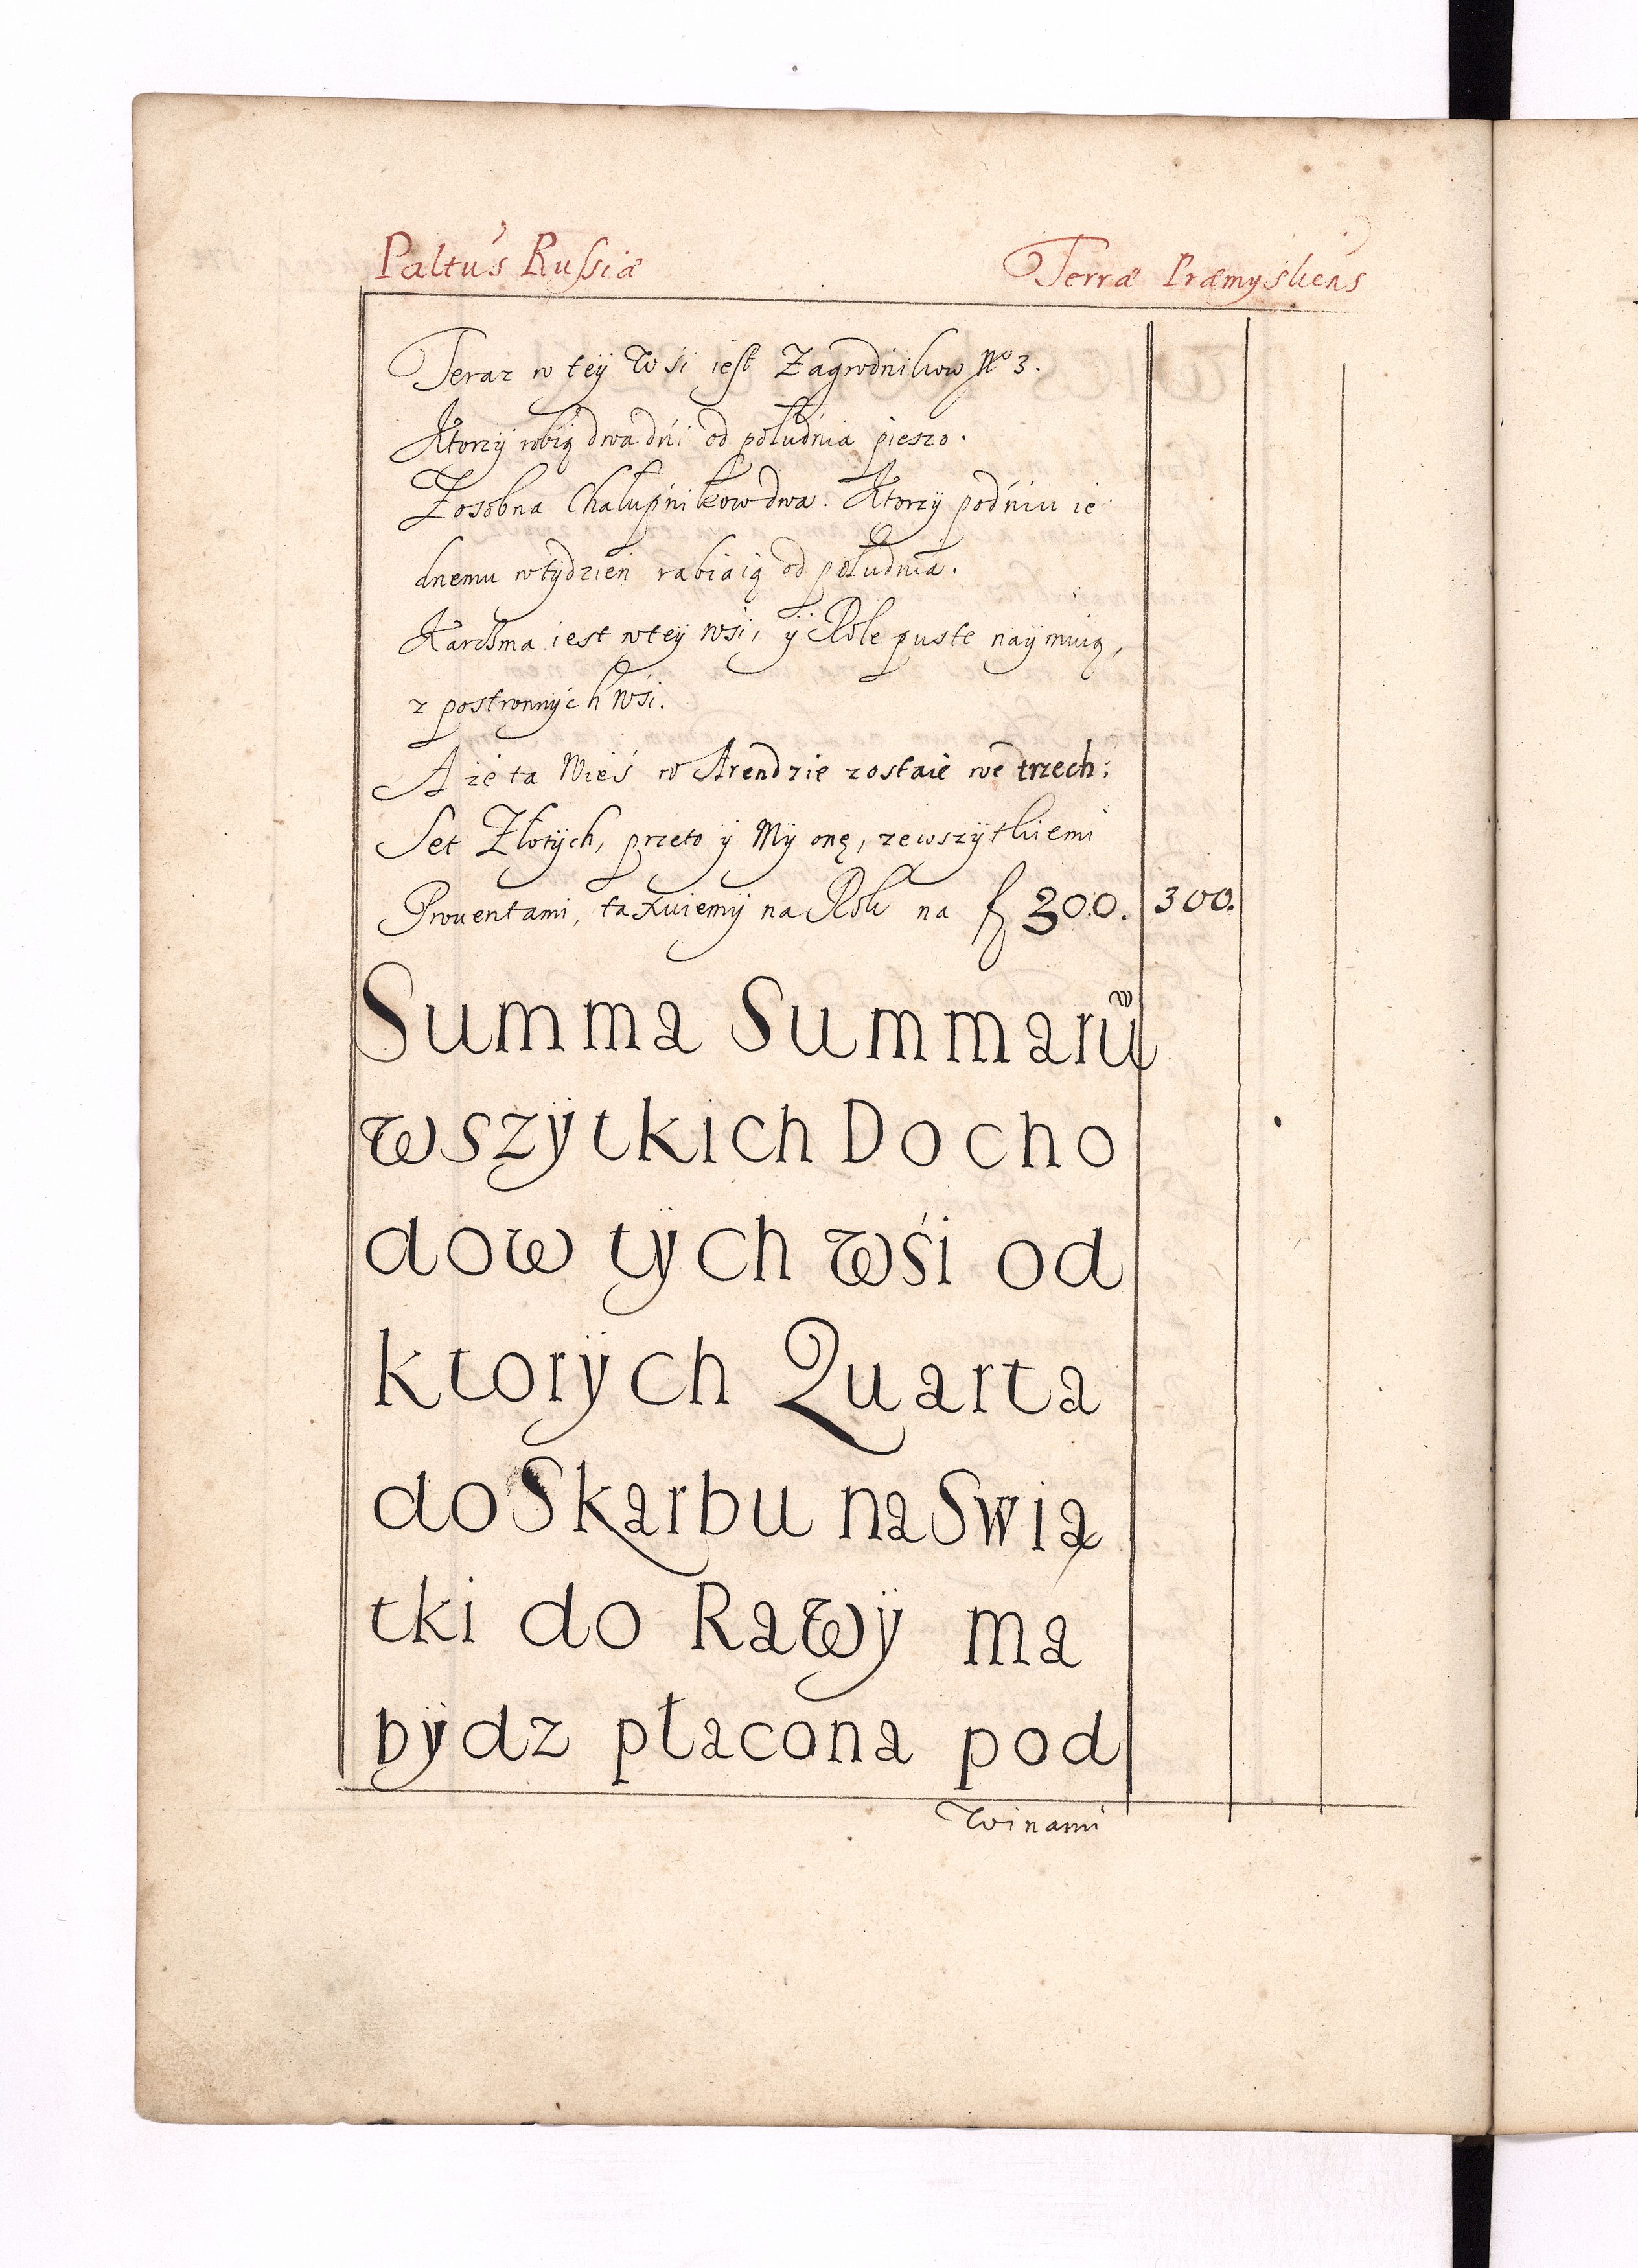 Paltus Russiæ Terræ Præmysliens
Teraz w teÿ Wsi iest Zagrodnikow No 3.
Ktorzÿ robią dwa dńi od południa pieszo.
Zosobna Chałupnikow dwa. Ktorzÿ podńiu ie
dnemu wtÿdzień rabiaią od południa.
Karczma iest wteÿ wsi, ÿ Role puste naÿmuią,
z postronnÿch wsi.
A że ta Wieś w Arendzie zostaie we trzech
Set Złotÿch, przeto ÿ Mÿ onę, zewszÿtkiemi
Prouentami, taxuiemÿ na Rok na f 300. 300.
Summa Summarũ
wszÿtkich Docho
dow tÿch wśi od
ktorÿch Quarta
do Skarbu na Swią
tki do Rawÿ ma
bÿdz płacona pod
Winami